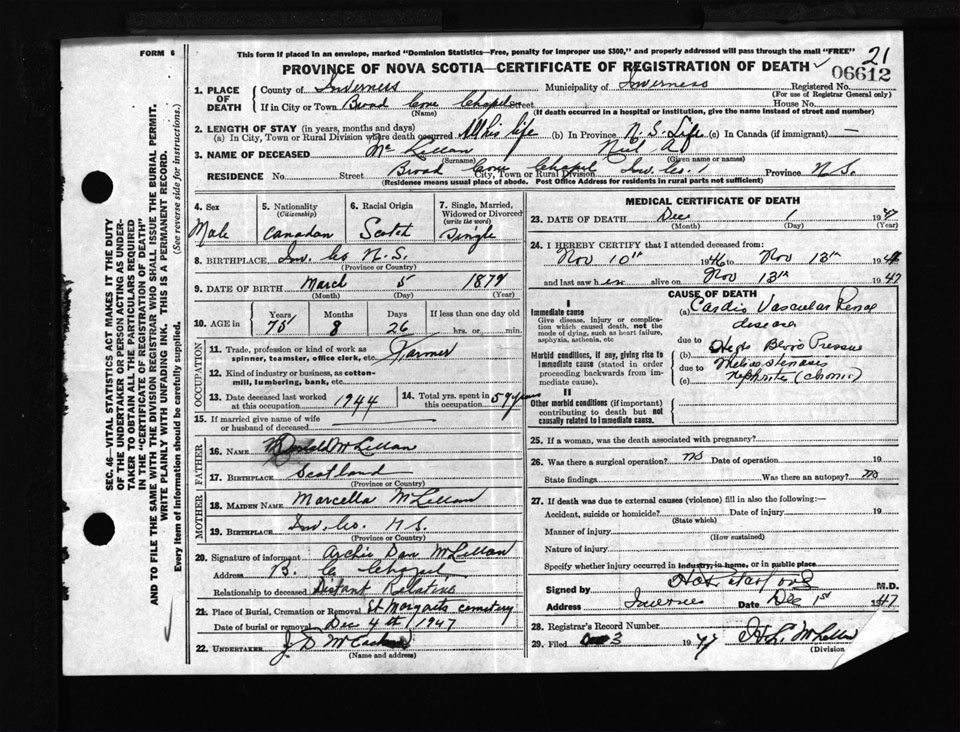 FORM 6
This form if placed in an envelope, marked "Dominion Statistics—Free, penalty for improper use $300," and properly addressed will pass through the mail "FREE"
21
PROVINCE OF NOVA SCOTIA—CERTIFICATE OF REGISTRATION OF DEATH
06612
1. PLACE OF DEATH
County of Inverness Municipality of Inverness Registered No.
(For use of Registrar General only)
If in City or Town Broad Cove Chapel Street House No.
(Name) (If death occurred in a hospital or institution, give the name instead of street and number)
2. LENGTH OF STAY (in years, months and days)
(a) In City, Town or Rural Division where death occurred All his life (b) In Province N.S. Life (c) In Canada (if immigrant) —
3. NAME OF DECEASED McLellan Neil A
(Surname) (Given name or names)
RESIDENCE No. Street Broad Cove Chapel City, Town or Rural Division Inv. Co. Province N.S.
(Residence means usual place of abode. Post Office Address for residents in rural parts not sufficient)
4. Sex
Male
5. Nationality
(Citizenship)
Canadian
6. Racial Origin
Scotch
7. Single, Married, Widowed or Divorced
(write the word)
Single
8. BIRTHPLACE Inv. Co N.S.
(Province or Country)
9. DATE OF BIRTH March 5 1879
(Month) (Day) (Year)
10. AGE in
Years Months Days If less than one day old
75 8 26 hrs. or min.
OCCUPATION
11. Trade, profession or kind of work as spinner, teamster, office clerk, etc. Farmer
12. Kind of industry or business, as cotton-mill, lumbering, bank, etc.
13. Date deceased last worked at this occupation 1944
14. Total yrs. spent in this occupation 59 years
15. If married give name of wife or husband of deceased
FATHER
16. NAME Donald McLellan
17. BIRTHPLACE Scotland
(Province or Country)
MOTHER
18. MAIDEN NAME Marcella McLellan
19. BIRTHPLACE Inv. Co. N.S.
(Province or Country)
20. Signature of informant Archie Dan McLellan
Address B. C. Chapel
Relationship to deceased Distant Relative
21. Place of Burial, Cremation or Removal St Margarets cemetery
Date of burial or removal Dec 4th 1947
22. UNDERTAKER J D
(Name and address)
MEDICAL CERTIFICATE OF DEATH
23. DATE OF DEATH Dec 1 1947
(Month) (Day) (Year)
24. I HEREBY CERTIFY that I attended deceased from:
Nov 10th 1946 to Nov 13th
and last saw him alive on Nov 13th 1947
CAUSE OF DEATH
I
Immediate cause
Give disease, injury or complication which caused death, not the mode of dying, such as heart failure, asphyxia, asthenia, etc
(a) Cardio Vascular Renal disease
due to
Morbid conditions, if any, giving rise to immediate cause (stated in order proceeding backwards from immediate cause).
(b) High Blood Pressure
due to
(c) nephritis (chronic)
II
Other morbid conditions (if important) contributing to death but not causally related to immediate cause.
25. If a woman, was the death associated with pregnancy?
26. Was there a surgical operation? no Date of operation 19
State findings Was there an autopsy? no
27. If death was due to external causes (violence) fill in also the following:—
Accident, suicide or homicide? Date of injury 19
(State which)
Manner of injury
(How sustained)
Nature of injury
Specify whether injury occurred in industry, in home, or in public place
Signed by M.D.
Address Inverness Date Dec 1st 1947
28. Registrar's Record Number
29. Filed 3 1947 McLellan
(Division
SEC. 46—VITAL STATISTICS ACT MAKES IT THE DUTY OF THE UNDERTAKER OR PERSON ACTING AS UNDERTAKER TO OBTAIN ALL THE PARTICULARS REQUIRED IN THE "CERTIFICATE OF REGISTRATION OF DEATH" AND TO FILE THE SAME WITH THE DIVISION REGISTRAR WHO SHALL ISSUE THE BURIAL PERMIT.
WRITE PLAINLY WITH UNFADING INK. THIS IS A PERMANENT RECORD.
Every item of information should be carefully supplied. (See reverse side for instructions.)